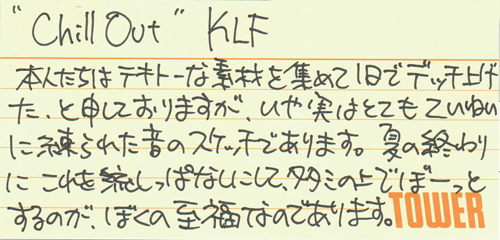 "Chill Out" KLF
本人たちはテキトーな素材を集めて1日でデッチ上げ
た、と申しておりますが、いや実はとてもていねい
に練られた音のスケッチであります。夏の終わり
に これを流しっぱなしにして、タタミの上でぼーっと
するのが、ぼくの至福なのであります。TOWER